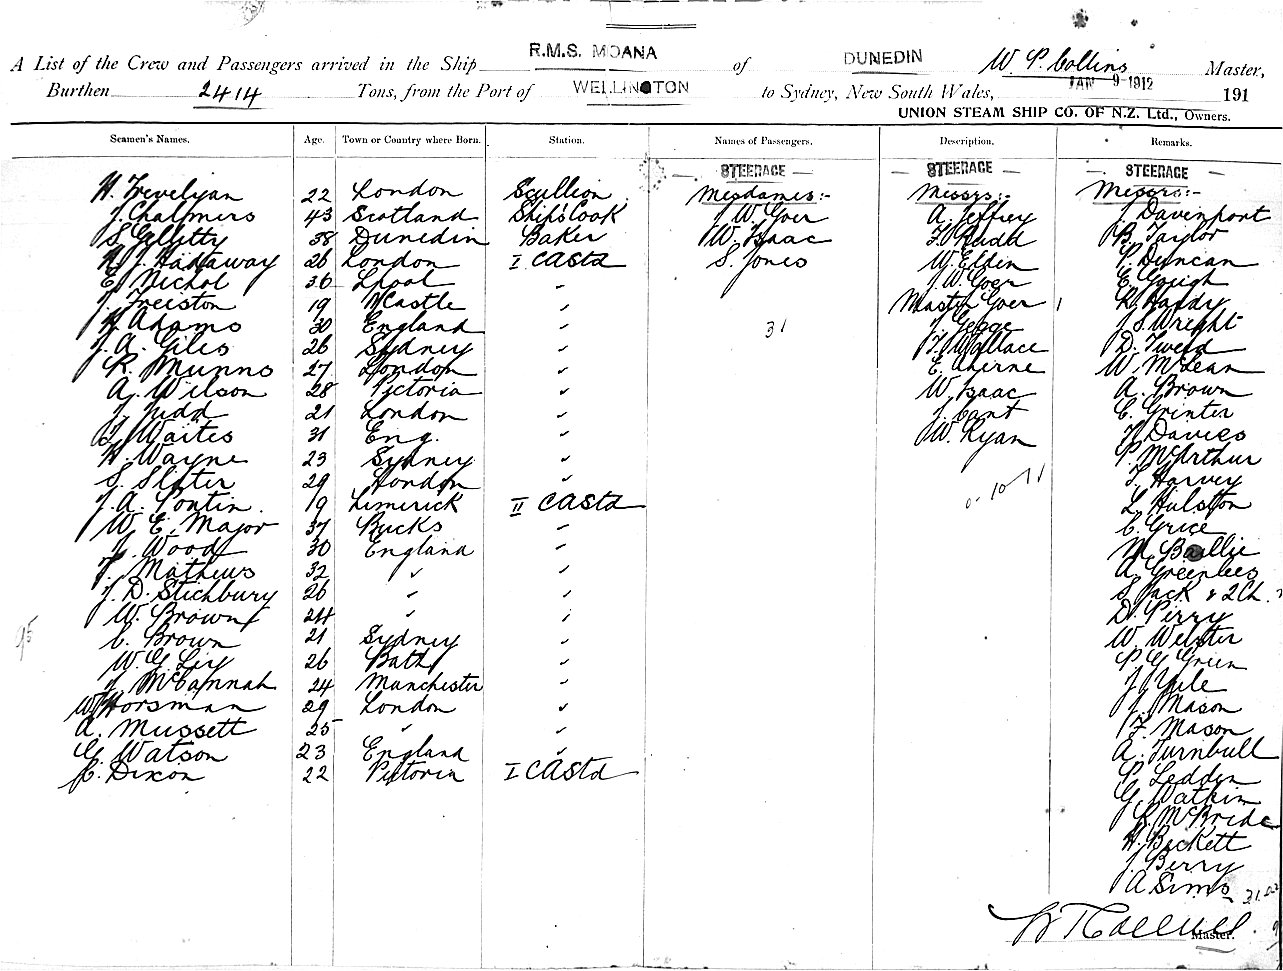 R.M.S. MOANA DUNEDIN W. P. Collins
A List of the Crew and Passengers arrived in the Ship of Master,
Burthen 2414 Tons, from the Port of WELLINGTON to Sydney, New South Wales, JAN 9-1912 191
UNION STEAM SHIP CO. OF N.Z. Ltd., Owners.
Seamen's Names. Age. Town or Country where Born. Station. Names of Passengers. Description. Remarks.
STEERAGE STEERAGE STEERAGE
H. Trevelyan 22 London Scullion Mesdames:- Messrs:- Messrs:-
J. Chalmers 43 Scotland Ship's Cook J. W. Goer A. Jeffrey J. Davenport
S. Gellitty 38 Dunedin Baker W. Isaac F. Rudd B. Taylor
H. J. Hathaway 26 London I CASTD S. Jones W. Elden P. Duncan
E. Nichol 36 Lpool " J. W. Goer E. Gough
J. Freiston 19 NCastle " Master Goer 1 R. Hardy
H. Adams 30 England " 31 J. George J. S. Wright
J. A. Giles 26 Sydney " F. Wallace D. Tweed
R. Munro 27 London " E. Aherne W. McLean
A. Wilson 28 Victoria " W. Isaac A. Brown
J. Judd 21 London " J. Cant C. Grinter
J. Waites 31 Eng. " W. Ryan H. Davies
H. Wayne 23 Sydney " P. McArthur
S. Slater 29 London " F. Harvey
J. A. Pontin. 19 Limerick II CASTD L. Hulston
W. E. Major 37 Bucks " C. Grice
J. Wood 30 England " M. Baillie
F. Mathews 32 " " A. Greenlees
J. D. Stichbury 26 " " S. Jack & 2 Ch.
W. Brown 24 " " D. Perry
C. Brown 21 Sydney " W. Webster
W. G. 26 Bath " P. G. Green
J. McCannah 24 Manchester " J. Yule
W. Horsman 29 London " J. Mason
A. Mussett 25 " " F. Mason
G. Watson 23 England " A. Turnbull
C. Dixon 22 Victoria I CASTD P. Leddin
G. Watkin
S. McBride
H. Beckett
J. Berry
A Sims
Master.